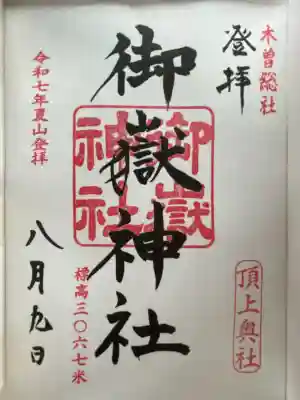 木曽総社
登拝
御嶽神社
御嶽神社
頂上奥社
標高三〇六七米
令和七年夏山登拝
八月九日